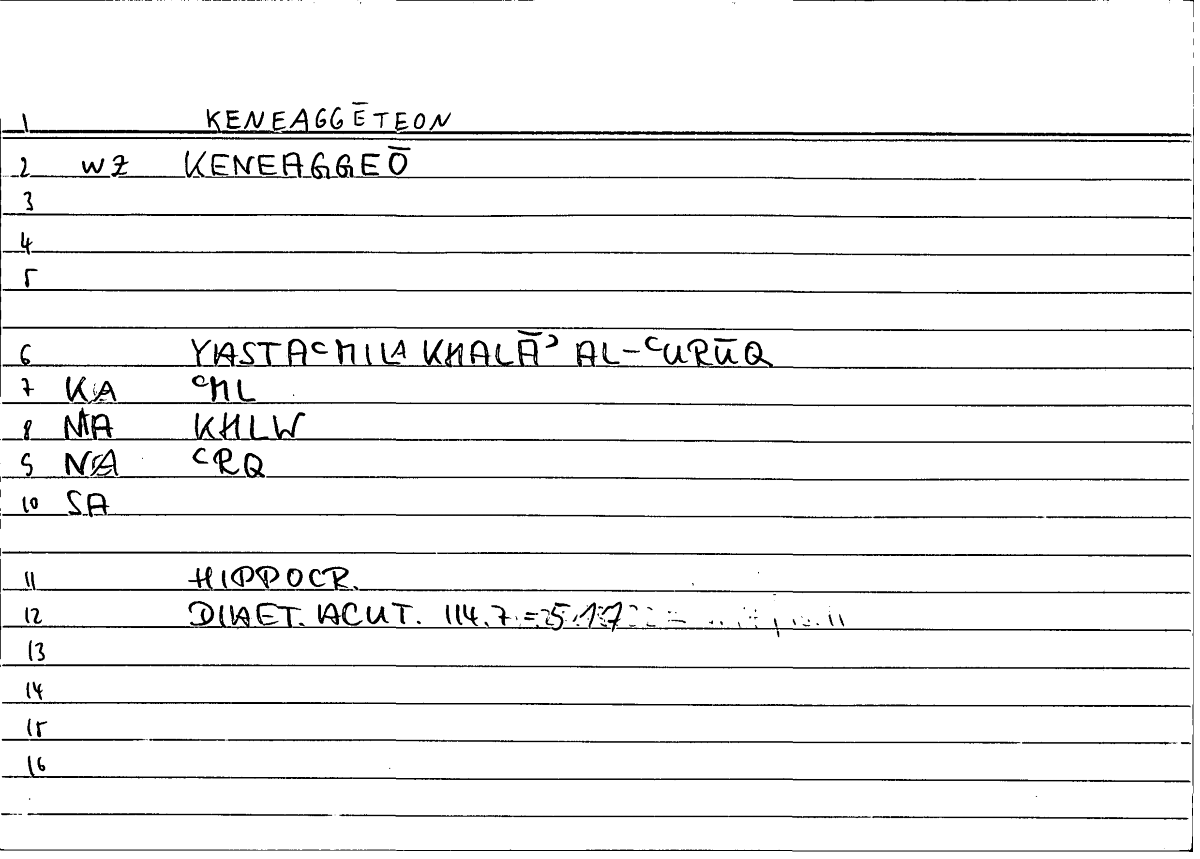 1 KENEAGGĒTEON
2 WZ KENEAGGEŌ
3
4
5
6 YASTAʿMILA KHALĀʾ AL-ʿURŪQ
7 KA ʿML
8 MA KHLW
9 NA ʿRQ
10 SA
11 HIPPOCR.
12 DIAET. ACUT. 114.7 = 5.17
13
14
15
16